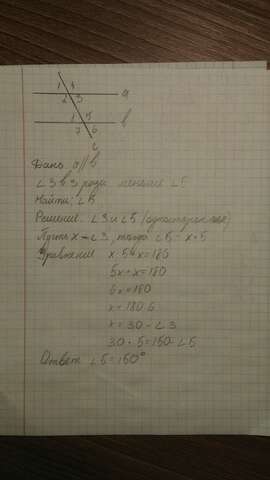 1 4
2 3 a
1 5 b
7 6
c
Дано: a || b
∠3 в 5 раз меньше ∠5
Найти: ∠5
Решение. ∠3 и ∠5 (односторонние)
Пусть x - ∠3, тогда ∠5 - x·5
Уравнение x·5+x=180
5x+x=180
6x=180
x=180:6
x=30 - ∠3
30·5=150-∠5
Ответ ∠5=150°